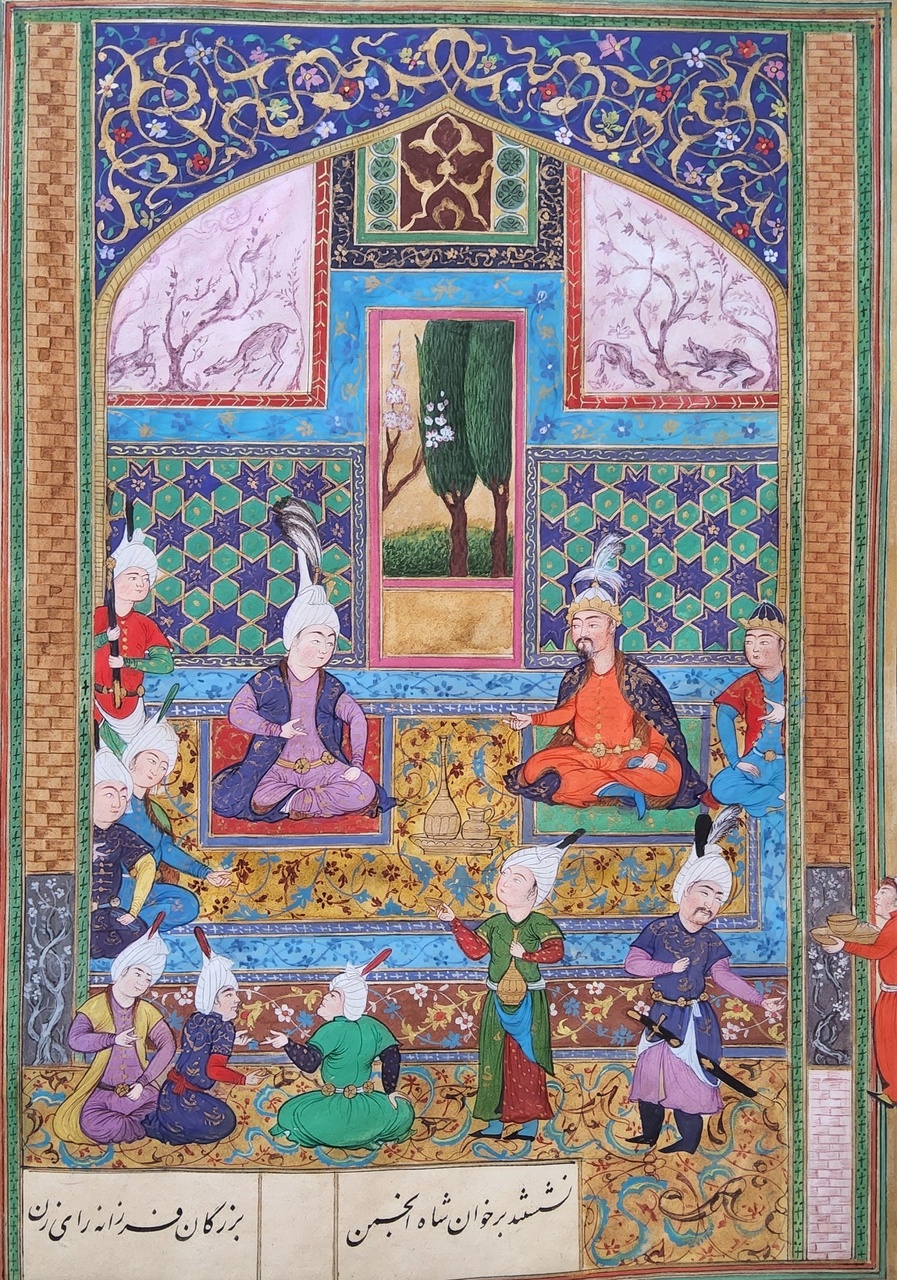 نشستند بر خوان شاه انجمن
بزرگان فرزانه رای زن